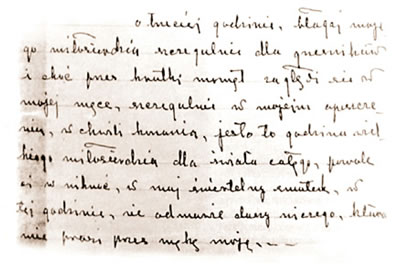 o trzeciej godzinie, błagaj moje
go miłosierdzia szczegulnie dla grzeszników
i choć przez krutki momęt zagłębi się w
mojej męce, szczegulnie w mojem opuszcze-
niu, w chwili konania, jesto to godzina wiel
kiego miłosierdzia dla świata całego, pozwole
ci w niknąć, w mój śmiertelny smutek, w
tej godzinie, nie odmuwie duszy niczego, ktura
mnie prosi przez mękę moją, –